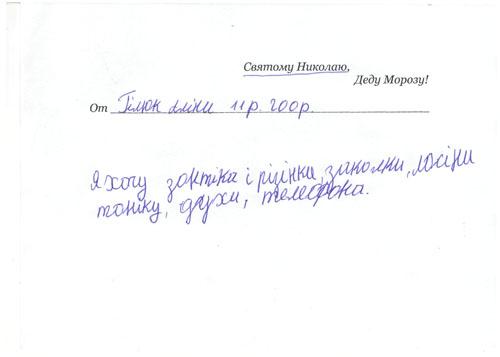 Святому Николаю,
Деду Морозу!
От Гілюк Аліни 11 р. 200р.
Я хочу зонтіка і різінки, заколки, лосіни
тоніку, духи, телефона.